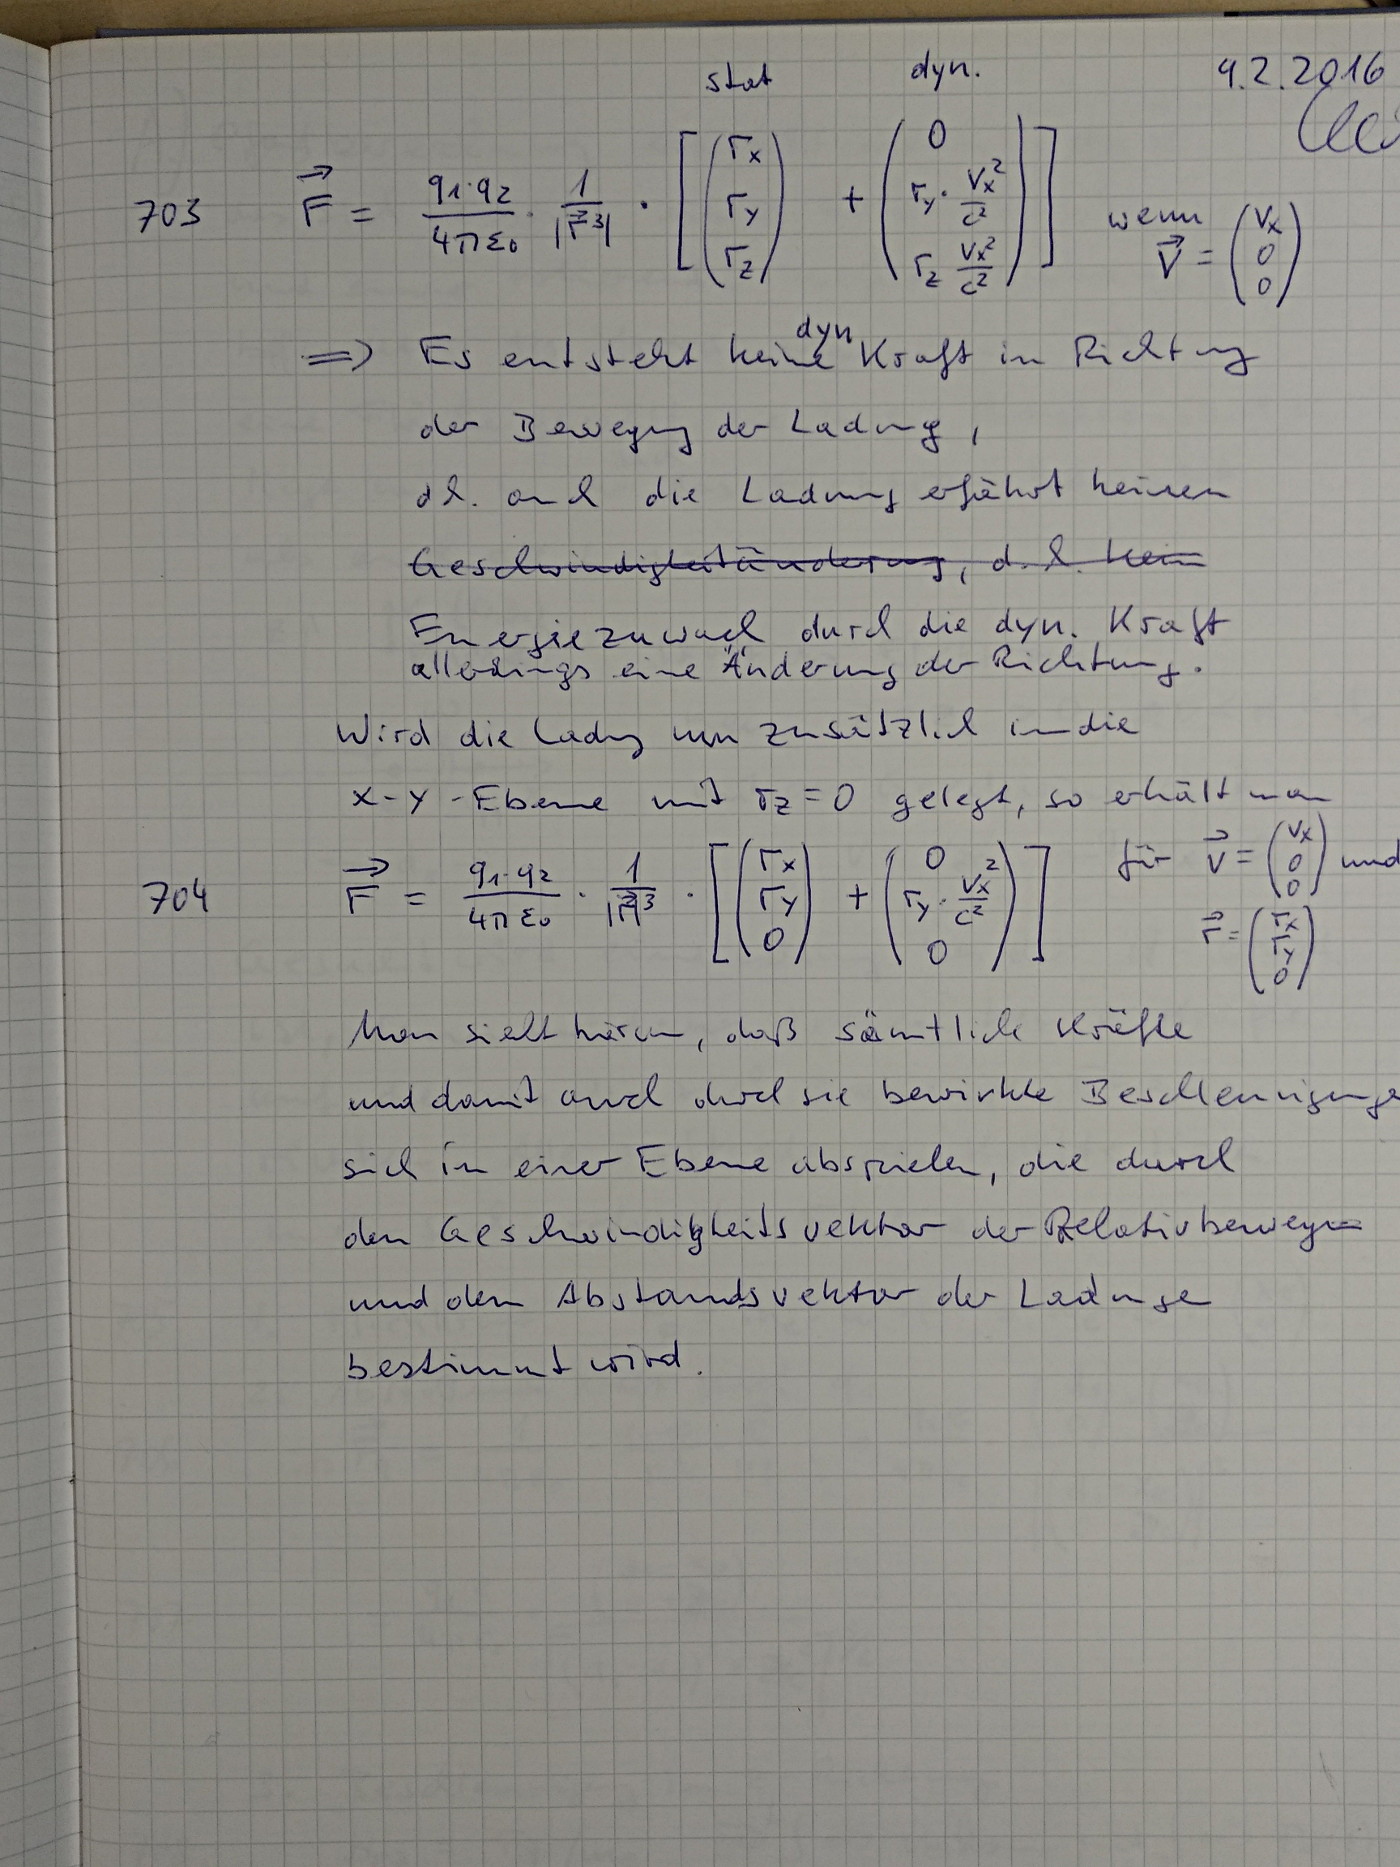 stat dyn. 9.2.2016
703 F⃗ = q1·q2/4πε0 · 1/|r⃗³| · [(rx ry rz) + (0 ry·vx²/c² rz vx²/c²)] wenn V⃗ = (vx 0 0)
dyn
=> Es entsteht keine Kraft in Richtung
der Bewegung der Ladung,
dh. auch die Ladung erfährt keinen
Geschwindigkeitänderung, d.h. kein
Energiezuwach durch die dyn. Kraft
allerdings eine Änderung der Richtung.
Wird die Ladung nun zusätzlich in die
x-y-Ebene mit rz=0 gelegt, so erhält man
704 F⃗ = q1·q2/4πε0 · 1/|r⃗|³ · [(rx ry 0) + (0 ry·vx²/c² 0)] für V⃗ = (vx 0 0) und
r⃗ = (rx ry 0)
Man sieht hieran, daß sämtliche Kräfte
und damit auch durch sie bewirkte Beschleunigunge
sich in einer Ebene abspielen, die durch
den Geschwindigkeitsvektor der Relativbewegun
und den Abstandsvektor der Ladunge
bestimmt wird.